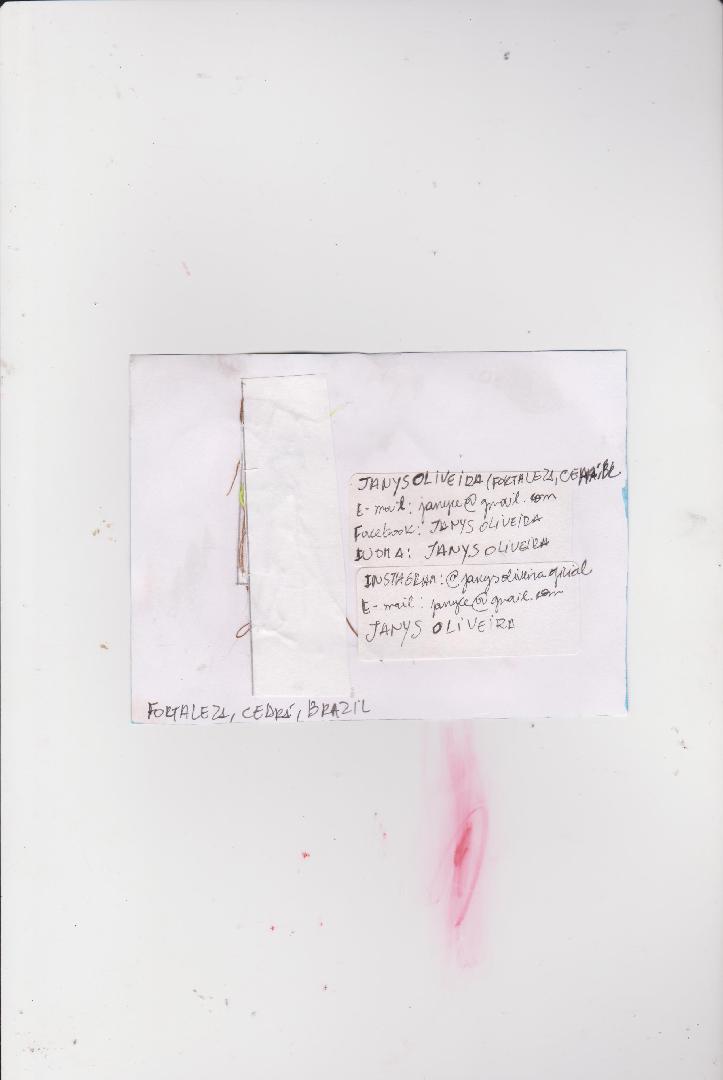 JANYS OLIVEIRA (FORTALEZA, CEARÁ, BR
E-mail: janyce@gmail.com
Facebook: JANYS OLIVEIRA
IUOMA: JANYS OLIVEIRA
INSTAGRAM: @janysoliveiraoficial
E-mail: janyce@gmail.com
JANYS OLIVEIRA
FORTALEZA, CEARÁ, BRAZIL